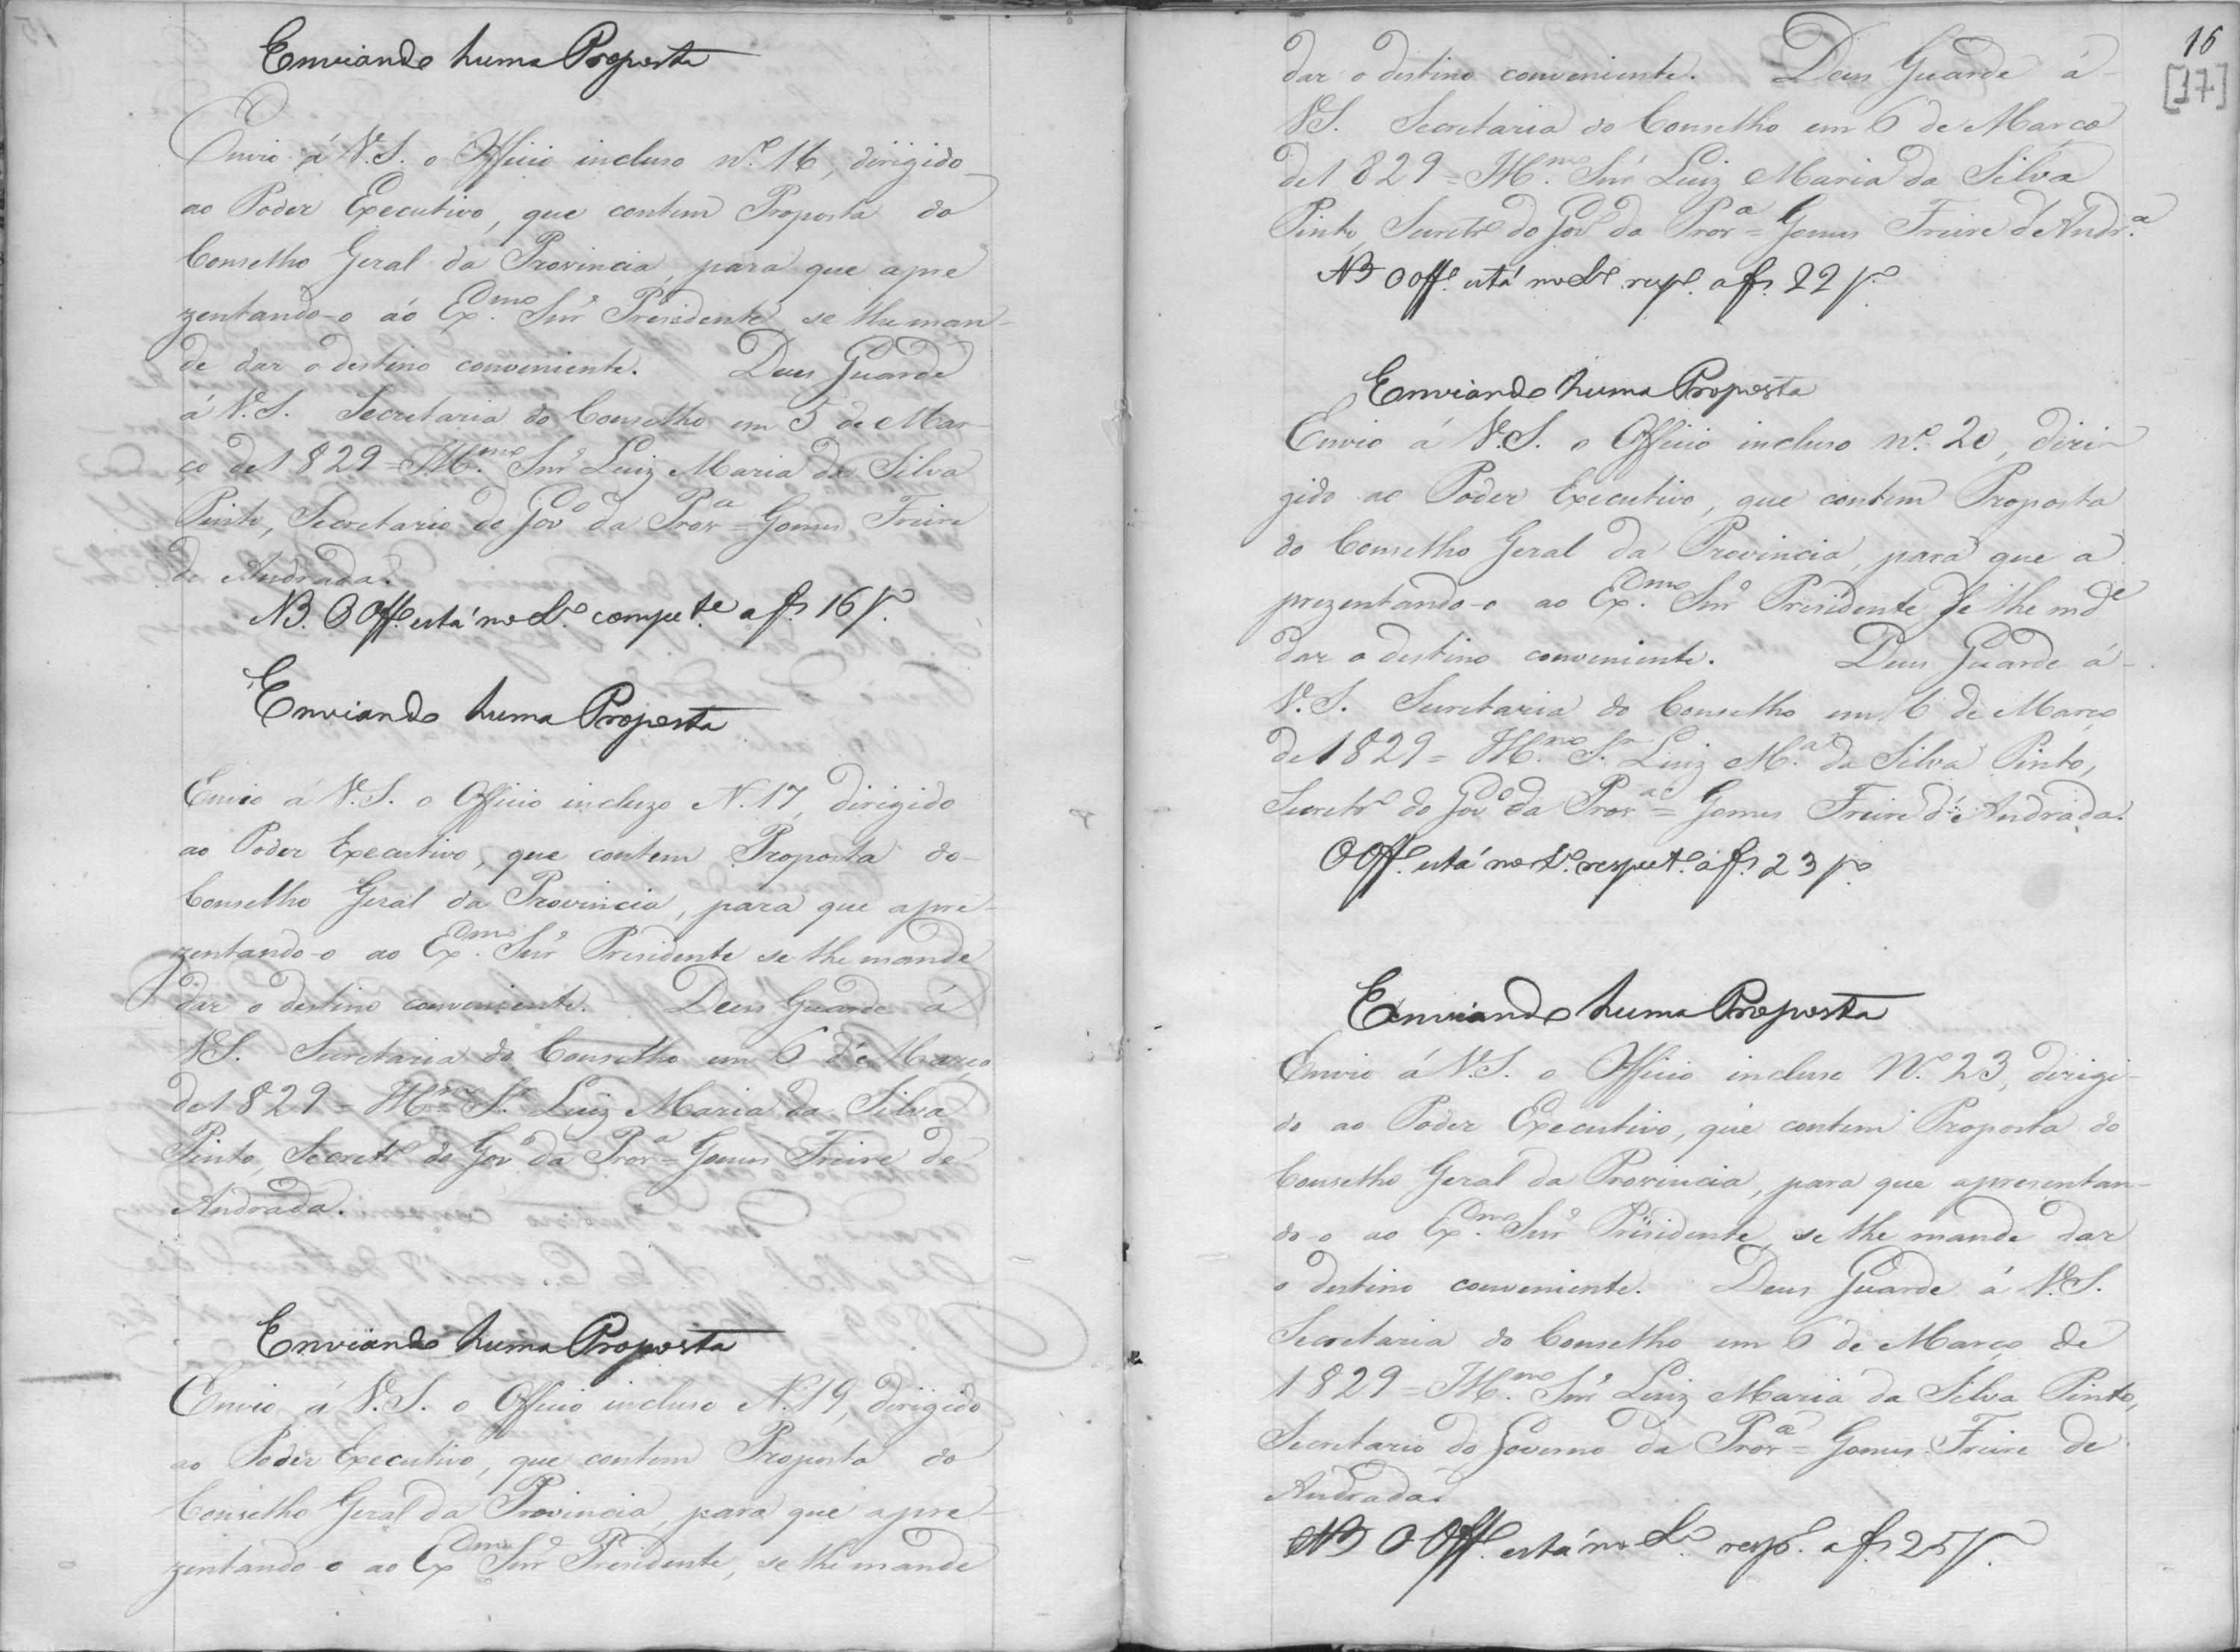 Enviando huma Proposta
Envio á V.S. o Officio incluso Nº. 16, dirigido
ao Poder Executivo, que contem Proposta do
Conselho Geral da Provincia, para que apre
zentando-o áo Exmo. Snr Presidente se lhe man-
de dar o destino conveniente. Deus Guarde
á V.S. Secretaria do Conselho em 5 de Mar-
ço de 1829 = Illmo. Snr Luiz Maria da Silva
Pinto, Secretario do Govo da Prova = Gomes Freire
de Andrada.
NB. O Offº. está no Lº. compete. a fs. 16 vº.
Enviando huma Proposta
Envio á V.S. o Officio incluzo N. 17, dirigido
ao Poder Executivo, que contem Proposta do-
Conselho Geral da Provincia, para que apre-
zentando-o ao Exmo. Snr Presidente se lhe mande
dar o destino conveniente. Deus Guarde á
V.S. Secretaria do Conselho em 6 de Março
de 1829 = Illmo Sr. Luiz Maria da Silva
Pinto, Secretº do Govº da Prova = Gomes Freire de
Andrada.
Enviando huma Proposta
Envio á V.S. o Officio incluso N. 19, dirigido
ao Poder Executivo, que contem Proposta do
Conselho Geral da Provincia, para que apre-
zentando-o ao Exmo Snr Presidente, se lhe mande
16
[17]
dar o destino conveniente. Deus Guarde á-
V.S. Secretaria do Conselho em 6 de Março
de 1829 = Illmo. Snr Luiz Maria da Silva
Pinto, Secretº do Govº da Prova = Gomes Freire d'Andra.
NB O Offº. está no Lº respº. a fs. 22 vº.
Enviando huma Proposta
Envio á V.S. o Officio incluso Nº. 20, diri-
gido ao Poder Executivo, que contem Proposta
do Conselho Geral da Provincia, para que a
prezentando-o ao Exmo. Snr Presidente se lhe mde
dar o destino conveniente. Deus Guarde á-
V.S. Secretaria do Conselho em 6 de Março
de 1829 = Illmo. Sr. Luiz Ma. da Silva Pinto,
Secretº do Govº da Prova = Gomes Freire de Andrada.
O Offº. está no Lº. respetº. a fs. 23 vº.
Enviando huma Proposta
Envio á V.S. o Officio incluso Nº. 23, dirigi-
do ao Poder Executivo, que contem Proposta do
Conselho Geral da Provincia, para que apresentan-
do-o ao Exmo. Snr Presidente, se lhe mande dar
o destino conveniente. Deus Guarde á V.S.
Secretaria do Conselho em 6 de Março de
1829 = Illmo. Snr Luiz Maria da Silva Pinto,
Secretario do Governo da Prova = Gomes Freire de
Andrada.
NB O Offº. está no Lº. respº. a fs. 25 vº.